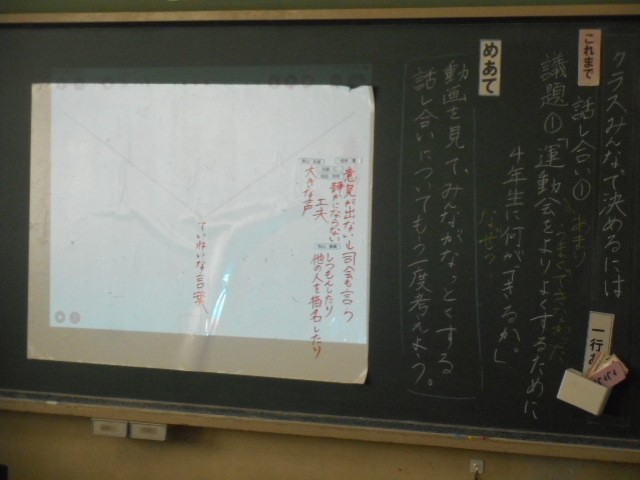 クラスみんなで決めるには
これまで
話し合い①
あまり
うまくできなかった
議題①「運動会をよりよくするために
4年生に何ができるか。」
なぜ?
一行
めあて
動画を見て、みんながなっとくする
話し合いについてもう一度考えよう。
意見が出ないと司会も言う
静かにならない
工夫
大きな声
しつもんしたり
他の人を指名したり
ていねいな言葉